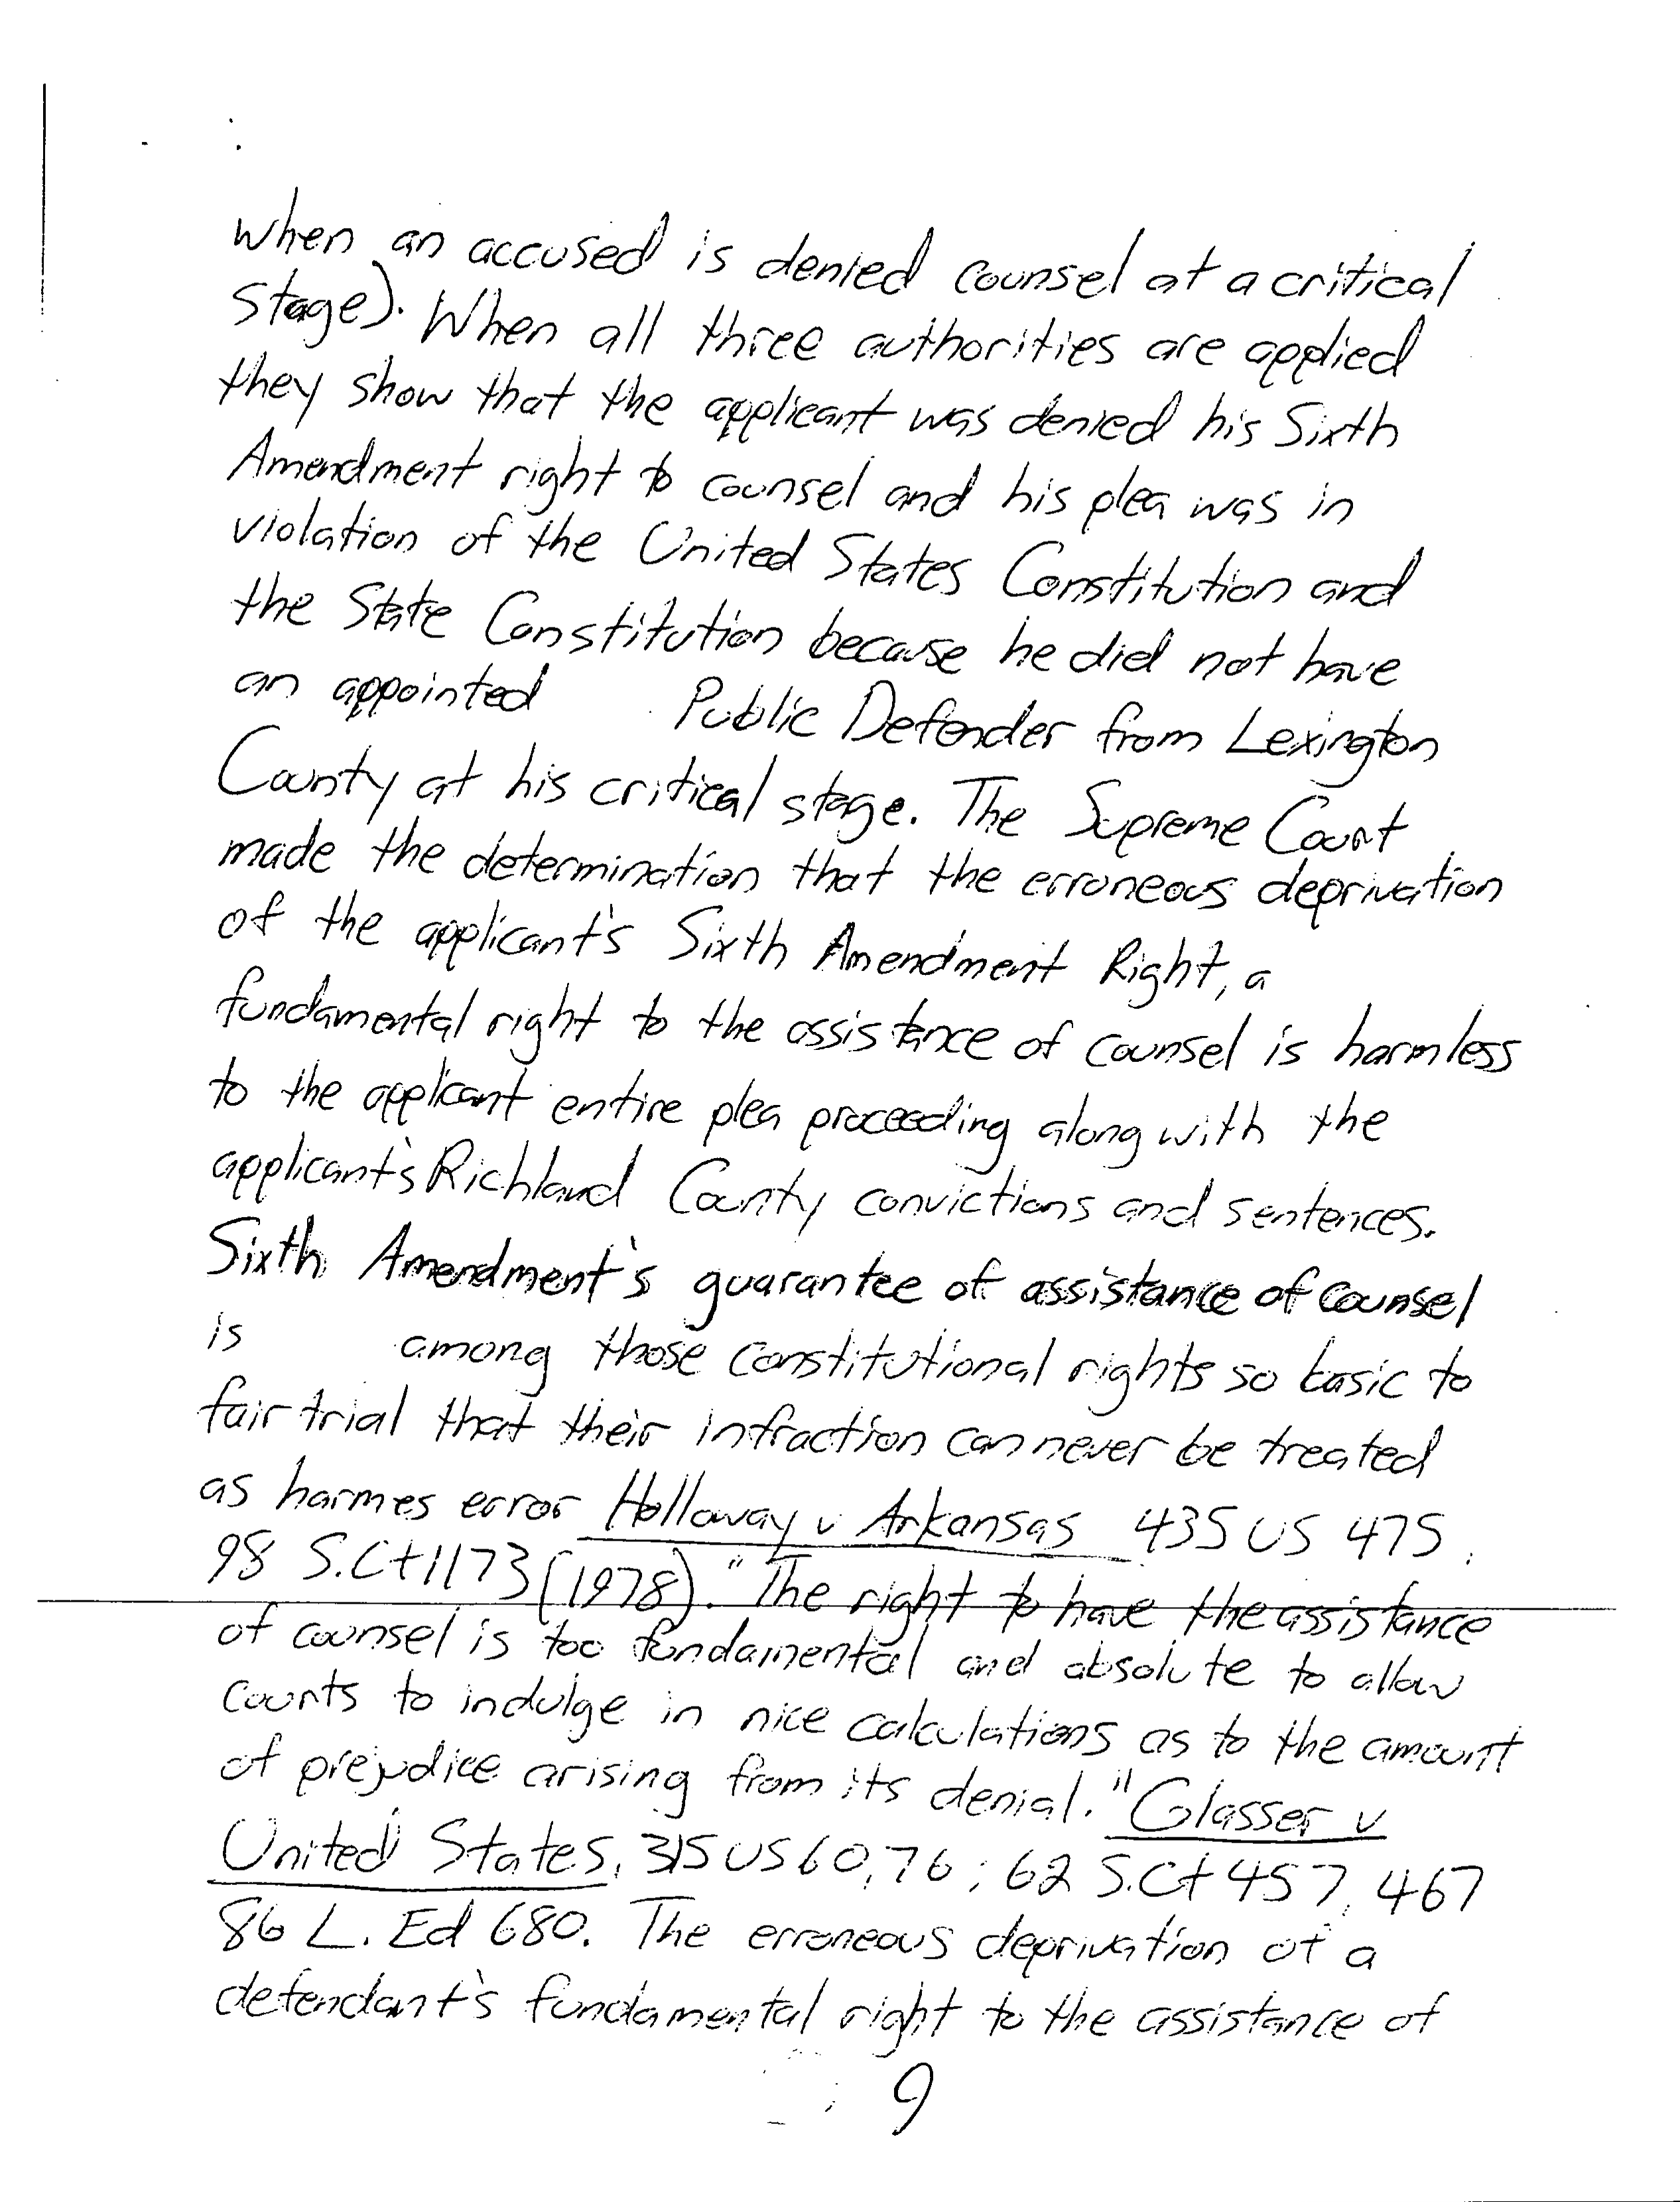 when an accused is denied counsel at a critical
stage). When all three authorities are applied
they show that the applicant was denied his Sixth
Amendment right to counsel and his plea was in
violation of the United States Constitution and
the State Constitution because he did not have
an appointed Public Defender from Lexington
County at his critical stage. The Supreme Court
made the determination that the erroneous deprivation
of the applicant's Sixth Amendment Right, a
fundamental right to the assistance of counsel is harmless
to the applicant entire plea proceeding along with the
applicant's Richland County convictions and sentences.
Sixth Amendment's guarantee of assistance of counsel
is among those constitutional rights so basic to
fair trial that their infraction can never be treated
as harmes error Holloway v Arkansas 435 US 475
98 S.Ct 1173 (1978). "The right to have the assistance
of counsel is too fundamental and absolute to allow
courts to indulge in nice calculations as to the amount
of prejudice arising from its denial." Glasser v
United States, 315 US 60, 76; 62 S.Ct 457, 467
86 L. Ed 680. The erroneous deprivation of a
defendant's fundamental right to the assistance of
9